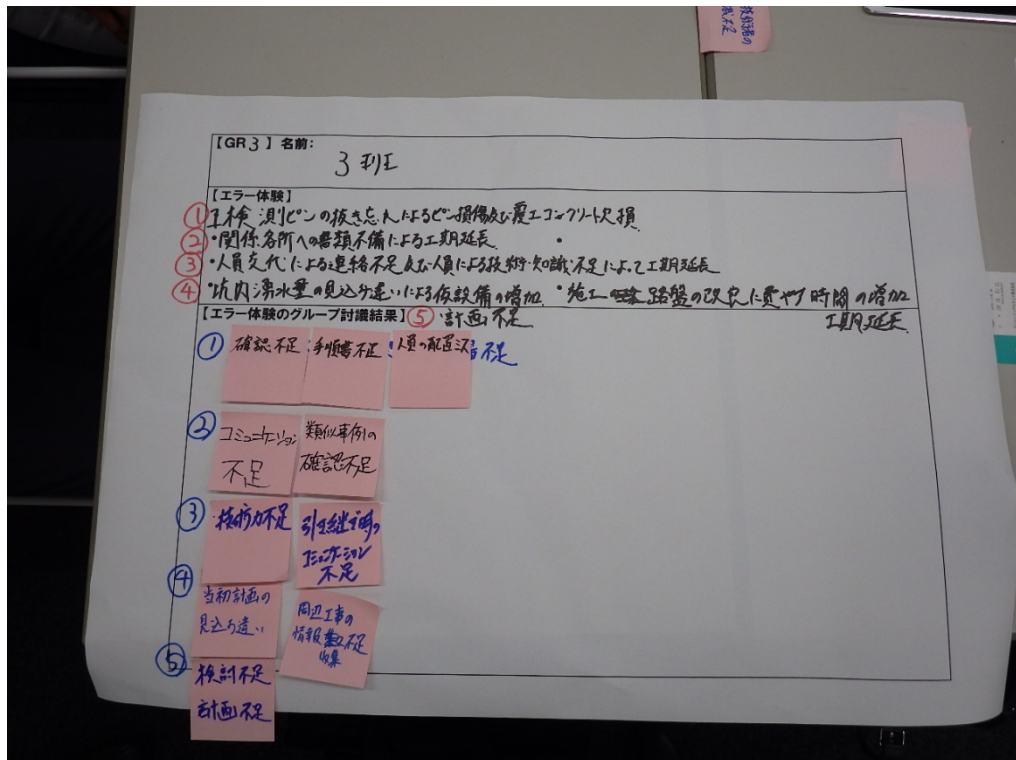 技術者の
不足
【GR 3 】 名前:
3班
【エラー体験】
① 検測ピンの抜き忘れによるピン損傷及び覆工コンクリート欠損
② ・関係各所への書類不備による工期延長 ・
③ ・人員交代による連絡不足及び人員による技術・知識不足によって工期延長
④ ・坑内湧水量の見込み違いによる仮設備の増加 ・施工 路盤の改良に費やす時間の増加
工期延長
【エラー体験のグループ討議結果】 ⑤ ・計画不足
① 確認不足 手順書不足 人員の配置 不足
② コミュニケーション 類似事例の
不足 確認不足
③ ・技術力不足 引き継ぎ時の
コミュニケーション
不足
④ 当初計画の 周辺工事の
見込み違い 情報 不足
収集
⑤ 検討不足
計画不足